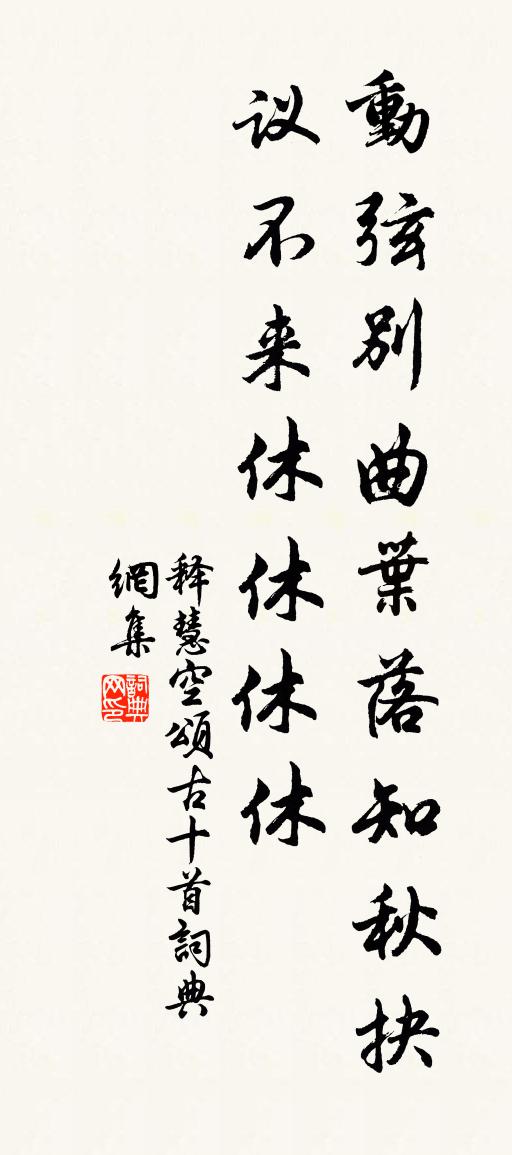 動弦別曲葉落知秋抉
议不来休休休休
释慧空頌古十首詞典
網集
詞典网印